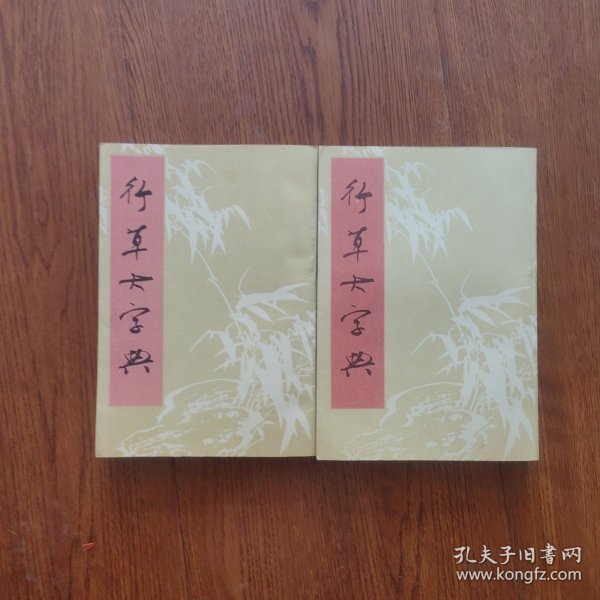 行草大字典
行草大字典
孔夫子旧書网
www.kongfz.com